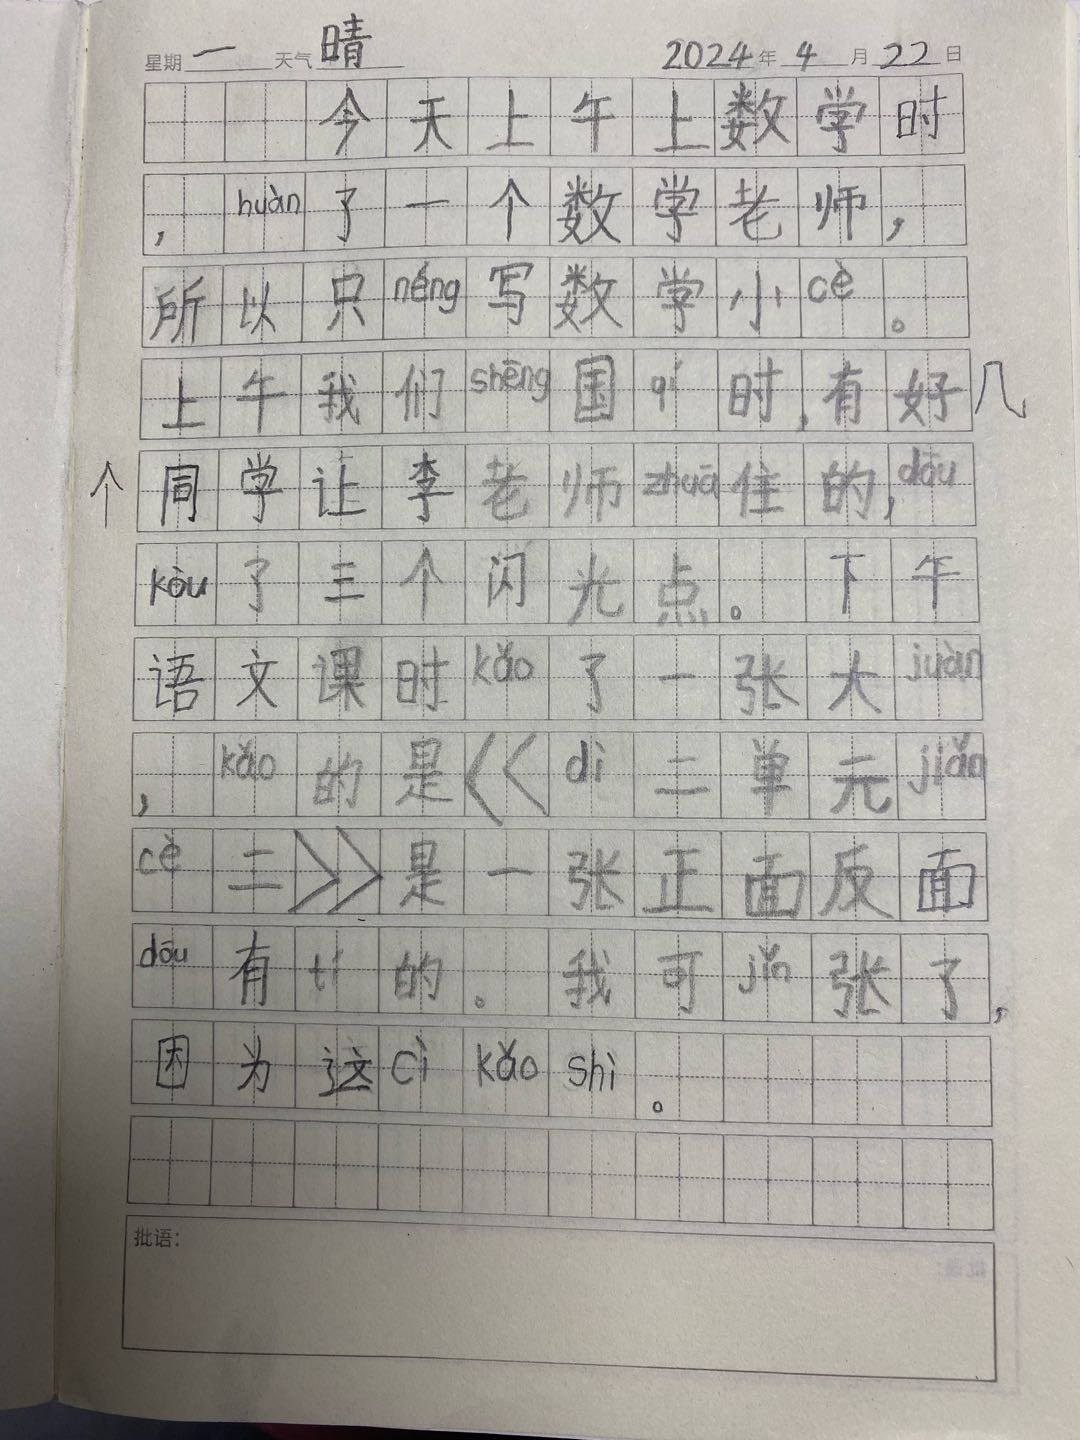 星期 一 天气 晴 2024年 4 月 22 日
今天上午上数学时
，huàn了一个数学老师，
所以只néng写数学小cè。
上午我们shēng国qí时，有好几
个同学让李老师zhuā住的，dōu
kòu了三个闪光点。下午
语文课时kǎo了一张大juàn
，kǎo的是《dì二单元jiǎn
cè二》是一张正面反面
dōu有tí的。我可jǐn张了，
因为这cì kǎo shì。
批语：